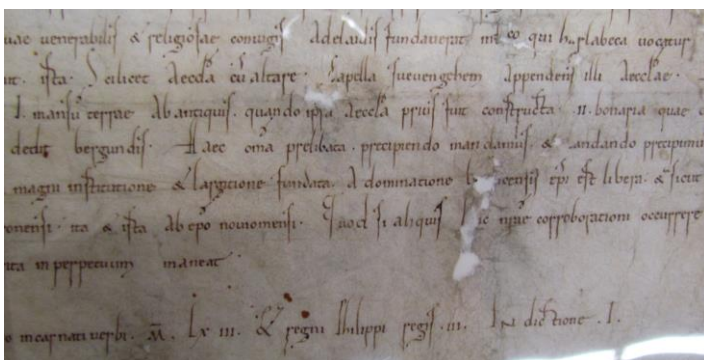 uae venerabilis & religiosae coniugis Adelaudis fundaverat in loco qui harlabeca vocatur
ista. Scilicet Aeccla cu altare. Capella suevenghem appendens illi Aecclae.
I. mansu terrae Ab antiquis. quando ipsa Aeccla prius fuit constructa. II. bonaria quae
dedit bergundis. Haec oma prelibata. precipiendo mandamus. & laudando precipimus
magni institutione & largitione fundata. A dominatione epi est libera. & sicut
ita & ista Ab epo noviomensi. Quod si aliquis hic nrae corroborationi occurrere
in perpetuum maneat.
o incarnati verbi. M. Lx III. & regni Philippi regis. III. INdictione. I.